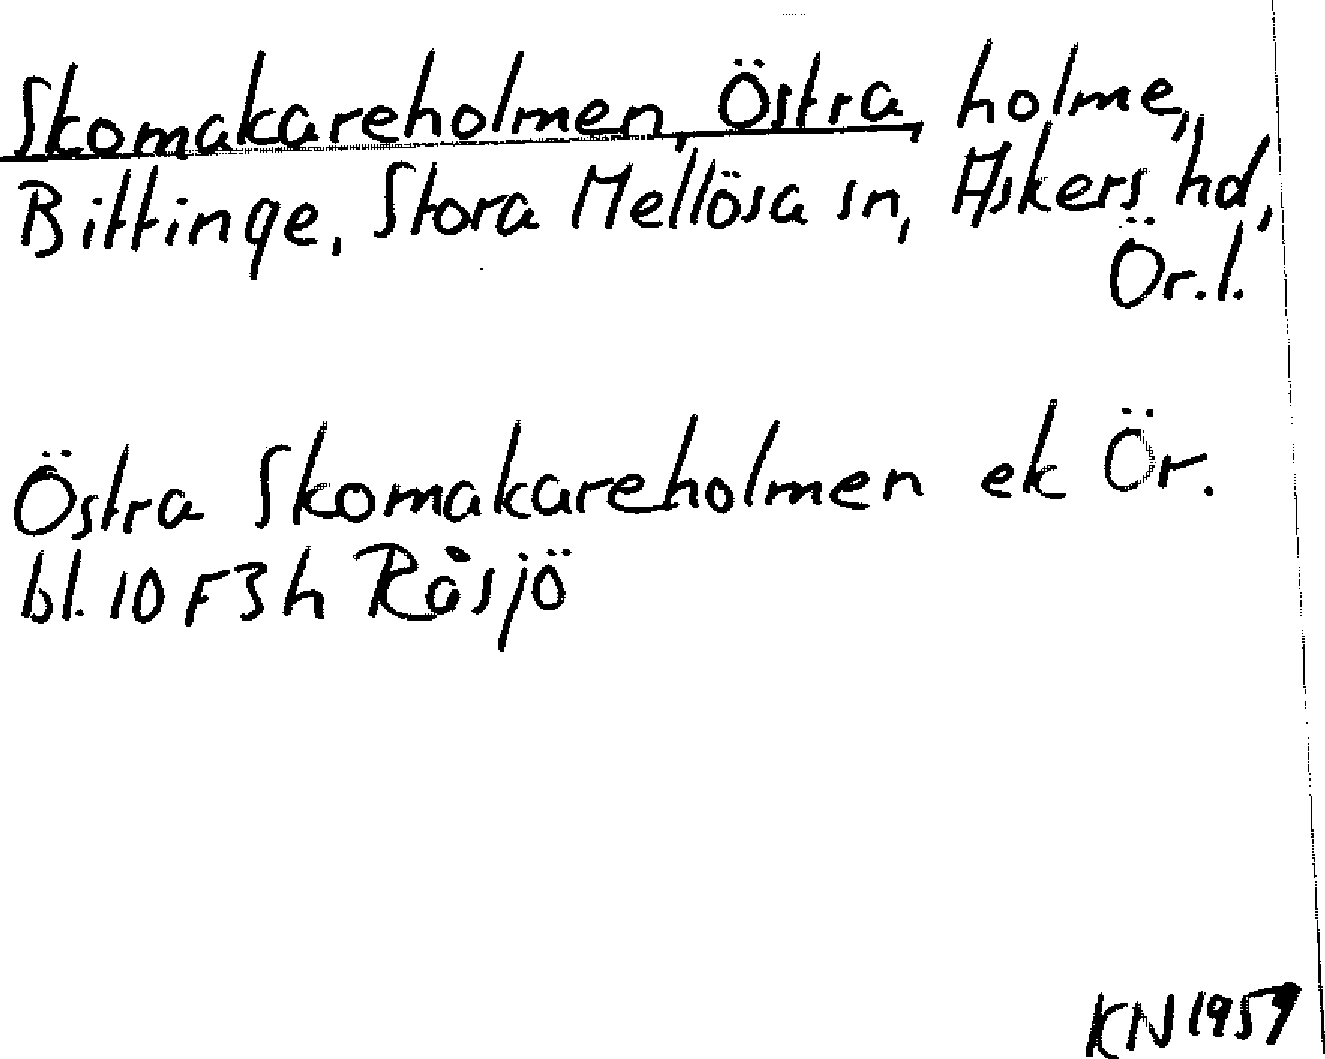 Skomakareholmen, Östra, holme,
Bittinge, Stora Mellösa sn, Askers hd,
Ör.l.
Östra Skomakareholmen ek Ör.
bl. 10 F 3 h Råsjö
KN 1959